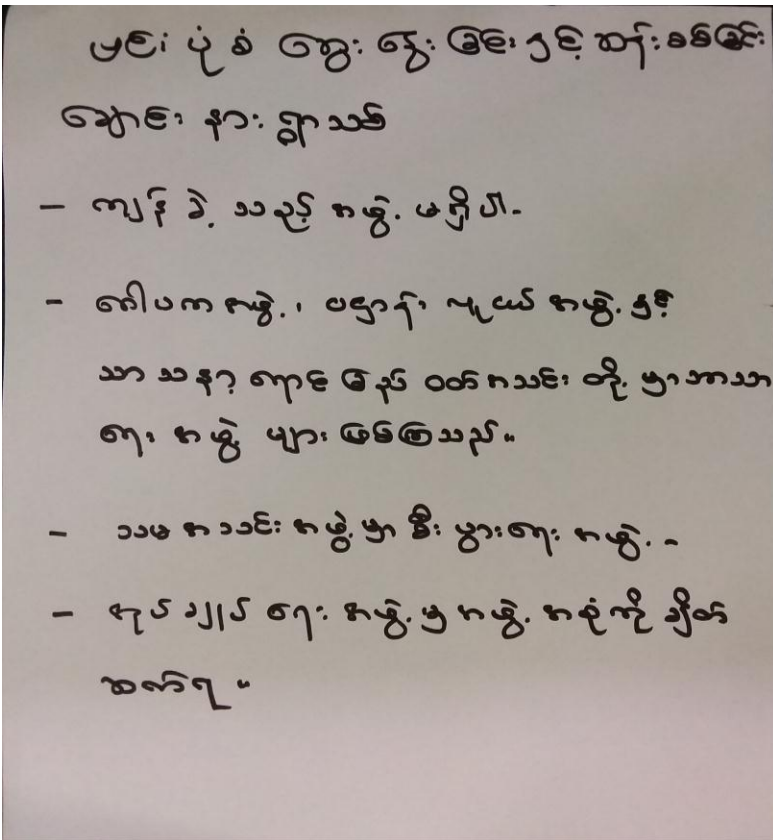 ပုံစံ ဆွေး နွေး ခြင်း နှင့် ဆန်းစစ်ခြင်း
ချောင်း နား ရွာသစ်
- ကျန် ခဲ့ သည့် အဖွဲ့ မရှိပါ-
- ဂေါပက အဖွဲ့၊ ပဋ္ဌာန်း လူငယ် အဖွဲ့ နှင့်
သာ သနာ့ ရောင် ခြည် ဝတ်အသင်း တို့ မှာ ဘာသာ
ရေး အဖွဲ့ များ ဖြစ်ကြသည်။
- သမ အသင်း အဖွဲ့ မှာ စီး ပွားရေး အဖွဲ့ -
- အုပ် ချုပ် ရေး အဖွဲ့ မှ အဖွဲ့ အစုံကို ချိတ်
ဆက်ရ ။